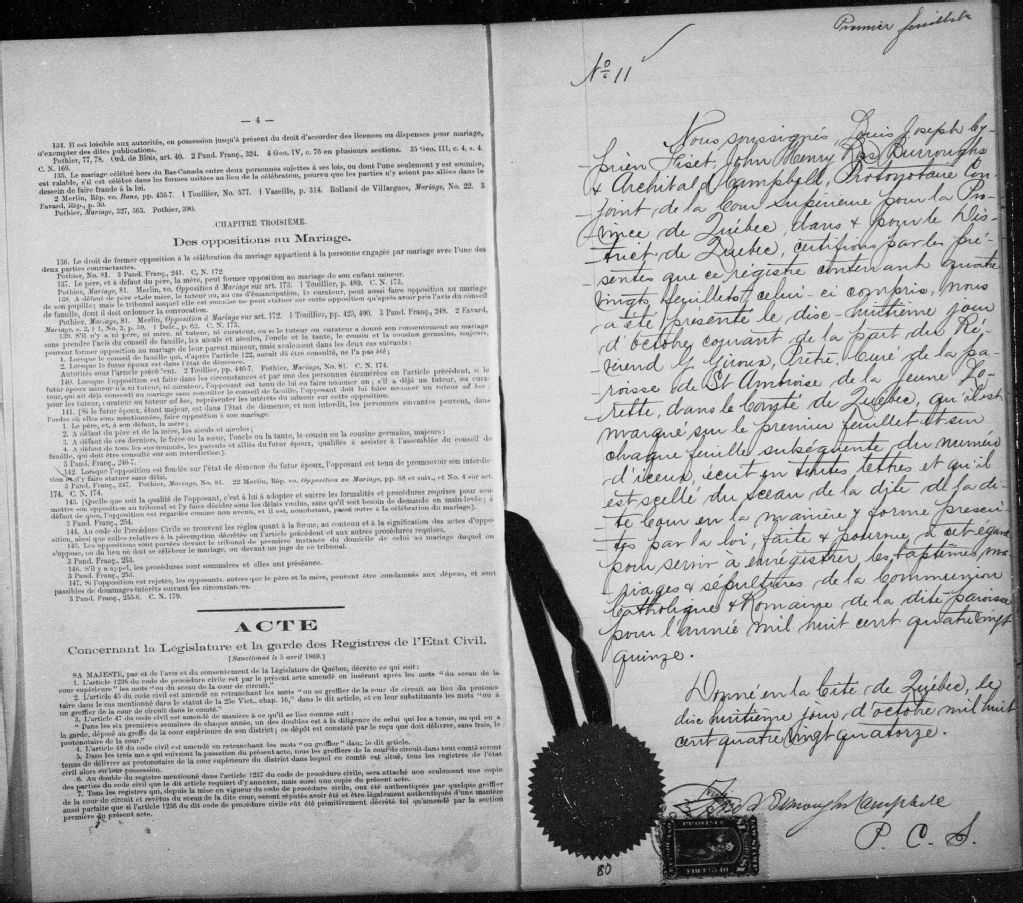 — 4 —
134. Il est loisible aux autorités, en possession jusqu'à présent du droit d'accorder des licences ou dispenses pour mariage,
d'exempter des dites publications.
Pothier, 77, 78. Ord. de Blois, art. 40. 2 Pand. Franç., 324. 4 Geo. IV, c. 76 en plusieurs sections. 35 Geo. III, c. 4, s. 4.
C. N. 169.
135. Le mariage célébré hors du Bas-Canada entre deux personnes sujettes à ses lois, ou dont l'une seulement y est soumise,
est valable, s'il est célébré dans les formes usitées au lieu de la célébration, pourvu que les parties n'y soient pas allées dans le
dessein de faire fraude à la loi.
2 Merlin, Rép. vo. Bans, pp. 436-7. 1 Touillier, No. 577. 1 Vazeille, p. 314. Rolland de Villargues, Mariage, No. 22. 3
Favard, Rép., p. 30.
Pothier, Mariage, 327, 363. Pothier, 390.
CHAPITRE TROISIÈME.
Des oppositions au Mariage.
136. Le droit de former opposition à la célébration du mariage appartient à la personne engagée par mariage avec l'une des
deux parties contractantes.
Pothier, No. 81. 3 Pand. Franç., 241. C. N. 172
137. Le père, et à défaut du père, la mère, peut former opposition au mariage de son enfant mineur.
Pothier, Mariage, 81. Merlin, vo. Opposition à Mariage sur art. 173. 1 Touillier, p. 489. C. N. 173.
138. A défaut de père et de mère, le tuteur ou, au cas d'émancipation, le curateur, peut aussi faire opposition au mariage
de son pupille; mais le tribunal auquel elle est soumise ne peut statuer sur cette opposition qu'après avoir pris l'avis du conseil
de famille, dont il doit ordonner la convocation.
Pothier, Mariage, 81. Merlin, Opposition à Mariage sur art. 172. 1 Touillier, pp. 425, 490. 3 Pand. Franç., 248. 2 Favard,
Mariage, s. 2, § 1, No. 3, p. 59, 1 Delv., p. 62. C. N. 175.
139. S'il n'y a ni père, ni mère, ni tuteur, ni curateur, ou si le tuteur ou curateur a donné son consentement au mariage
sans prendre l'avis du conseil de famille, les aïeuls et aïeules, l'oncle et la tante, le cousin et la cousine germains, majeurs,
peuvent former opposition au mariage de leur parent mineur, mais seulement dans les deux cas suivants :
1. Lorsque le conseil de famille qui, d'après l'article 122, aurait dû être consulté, ne l'a pas été;
2. Lorsque le futur époux est dans l'état de démence.
Autorités sous l'article précédent. 2 Touillier, pp. 446-7. Pothier, Mariage, No. 81. C. N. 174.
140. Lorsque l'opposition est faite dans les circonstances et par une des personnes énumérées en l'article précédent, si le
futur époux mineur n'a ni tuteur, ni curateur, l'opposant est tenu de lui en faire nommer un; s'il a déjà un tuteur, ou curateur,
qui ait déjà consenti au mariage sans consulter le conseil de famille, l'opposant doit lui faire nommer un tuteur ad hoc;
pour les tuteur, curateur ou tuteur ad hoc, représenter les intérêts du mineur sur cette opposition.
141. [Si le futur époux, étant majeur, est dans l'état de démence, et non interdit, les personnes suivantes peuvent, dans
l'ordre où elles sont mentionnées, faire opposition à son mariage.
1. Le père, et, à son défaut, la mère;
2. A défaut du père et de la mère, les aïeuls et aïeules;
3. A défaut de ces derniers, le frère ou la sœur, l'oncle ou la tante, le cousin ou la cousine germains, majeurs;
4. A défaut de tous les sus nommés, les parents et alliés du futur époux, qualifiés à assister à l'assemblée du conseil de
famille, qui doit être consulté sur son interdiction].
3 Pand. Franç., 246-7.
142. Lorsque l'opposition est fondée sur l'état de démence du futur époux, l'opposant est tenu de promouvoir son interdic-
tion et d'y faire statuer sans délai.
3 Pand. Franç., 247. Pothier, Mariage, No. 81. 22 Merlin, Rép. vo. Opposition au Mariage, pp. 88 et suiv., et No. 4 sur art.
174. C. N. 174.
143. [Quelle que soit la qualité de l'opposant, c'est à lui à adopter et suivre les formalités et procédures requises pour sou-
mettre son opposition au tribunal et l'y faire décider sous les délais voulus, sans qu'il soit besoin de demande en main levée; à
défaut de quoi, l'opposition est regardée comme non avenue, et il est, nonobstant, passé outre à la célébration du mariage].
3 Pand. Franç., 254.
144. Au code de Procédure Civile se trouvent les règles quant à la forme, au contenu et à la signification des actes d'oppo-
sition, ainsi que celles relatives à la péremption décrétée en l'article précédent et aux autres procédures requises.
145. Les oppositions sont portées devant le tribunal de première instance du domicile de celui au mariage duquel on
s'oppose, ou du lieu où doit se célébrer le mariage, ou devant un juge de ce tribunal.
3 Pand. Franç., 253.
146. S'il y a appel, les procédures sont sommaires et elles ont préséance.
3 Pand. Franç., 253.
147. Si l'opposition est rejetée, les opposants, autres que le père et la mère, peuvent être condamnés aux dépens, et sont
passibles de dommages-intérêts suivant les circonstances.
3 Pand. Franç., 255-6. C. N. 179.
ACTE
Concernant la Législature et la garde des Registres de l'Etat Civil.
[Sanctionné le 5 avril 1869.]
SA MAJESTE, par et de l'avis et du consentement de la Législature de Québec, décrète ce qui suit :
1. L'article 1236 du code de procédure civile est par le présent acte amendé en insérant après les mots "du sceau de la
cour supérieure" les mots "ou du sceau de la cour de circuit."
2. L'article 45 du code civil est amendé en retranchant les mots "ou au greffier de la cour de circuit au lieu du protono-
taire dans le cas mentionné dans le statut de la 25e Vict., chap. 16," dans le dit article, et en leur substituants les mots "ou à
un greffier de la cour de circuit dans le comté."
3. L'article 47 du code civil est amendé de manière à ce qu'il se lise comme suit :
"Dans les six premières semaines de chaque année, un des doubles est à la diligence de celui qui les a tenus, ou qui en a
la garde, déposé au greffe de la cour supérieure de son district; ce dépôt est constaté par le reçu que doit délivrer, sans frais, le
protonotaire de la cour."
4. L'article 48 du code civil est amendé en retranchant les mots "ou greffier" dans le dit article.
5. Dans les trois mois qui suivront la passation du présent acte, tous les greffiers de la cour de circuit dans tout comté seront
tenus de délivrer au protonotaire de la cour supérieure du district dans lequel ce comté est situé, tous les registres de l'état
civil alors en leur possession.
6. Au double du registre mentionné dans l'article 1237 du code de procédure civile, sera attaché non seulement une copie
des parties du code civil que le dit article requiert d'y annexer, mais aussi une copie du présent acte.
7. Tous les registres qui, depuis la mise en vigueur du code de procédure civile, ont été authentiqués par quelque greffier
de la cour de circuit et revêtus du sceau de la dite cour, seront réputés avoir été et être légalement authentiqués d'une manière
aussi parfaite que si l'article 1236 du dit code de procédure civile eût été primitivement décrété tel qu'amendé par la section
première du présent acte.
Premier feuillet
No 11
Nous soussignés Louis Joseph Cy-
prien Fiset, John Henry Burroughs
& Archibald Campbell, Protonotaire Con-
joint de la Cour Supérieure pour la Pro-
vince de Québec, dans & pour le Dis-
trict de Québec, certifions par les pré-
sentes que ce régistre contenant quatre
vingts feuillets, celui-ci compris, nous
a été présenté le disc-huitième jour
d'octobre courant de la part du Ré-
vérend J. Giroux, Prêtre, Curé de la pa-
roisse de St Ambroise de la Jeune Lo-
rette, dans le Comté de Québec, qu'il est
marqué sur le premier feuillet et sur
chaque feuille subséquente du numéro
d'iceux, écrit en toutes lettres et qu'il
est scellé du sceau de la dite de la di-
te Cour en la manière & forme prescri-
tes par la loi, faite & pourvue à cet égard
pour servir à enrégistrer les baptêmes, ma-
riages & sépultures de la Communion
Catholique & Romaine de la dite paroisse
pour l'année mil huit cent quatre vingt
quinze.
Donné en la Cité de Québec, le
disc huitième jour d'octobre mil huit
cent quatre vingt quatorze.
Fiset Burroughs Campbell
P. C. S.
80